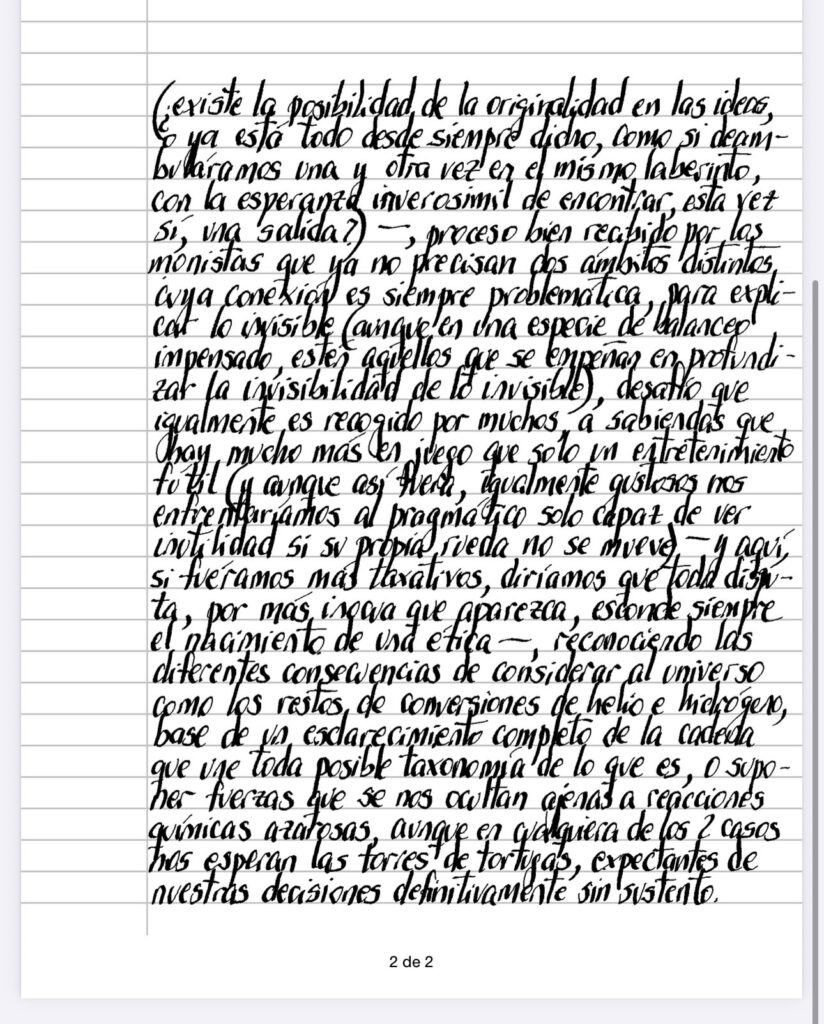 (¿existe la posibilidad de la originalidad en las ideas,
o ya está todo desde siempre dicho, como si deam-
buláramos una y otra vez en el mismo laberinto,
con la esperanza inverosimil de encontrar, esta vez
sí, una salida?) —, proceso bien recibido por los
monistas que ya no precisan dos ámbitos distintos,
cuya conexión es siempre problemática, para expli-
car lo invisible (aunque en una especie de balanceo
impensado, estén aquellos que se empeñan en profundi-
zar la invisibilidad de lo invisible), desafío que
igualmente es recogido por muchos, a sabiendas que
hay mucho más en juego que solo un entretenimiento
fútil (y aunque así fuera, igualmente gustosos nos
enfrentaríamos al pragmático solo capaz de ver
inutilidad si su propia rueda no se mueve) — y aquí,
si fuéramos más taxativos, diríamos que toda dispu-
ta, por más inocua que aparezca, esconde siempre
el nacimiento de una ética —, reconociendo las
diferentes consecuencias de considerar al universo
como los restos de conversiones de helio e hidrógeno,
base de un esclarecimiento completo de la cadena
que une toda posible taxonomía de lo que es, o supo-
ner fuerzas que se nos ocultan ajenas a reacciones
químicas azarosas, aunque en cualquiera de los 2 casos
nos esperan las torres de tortugas, expectantes de
nuestras decisiones definitivamente sin sustento.
2 de 2